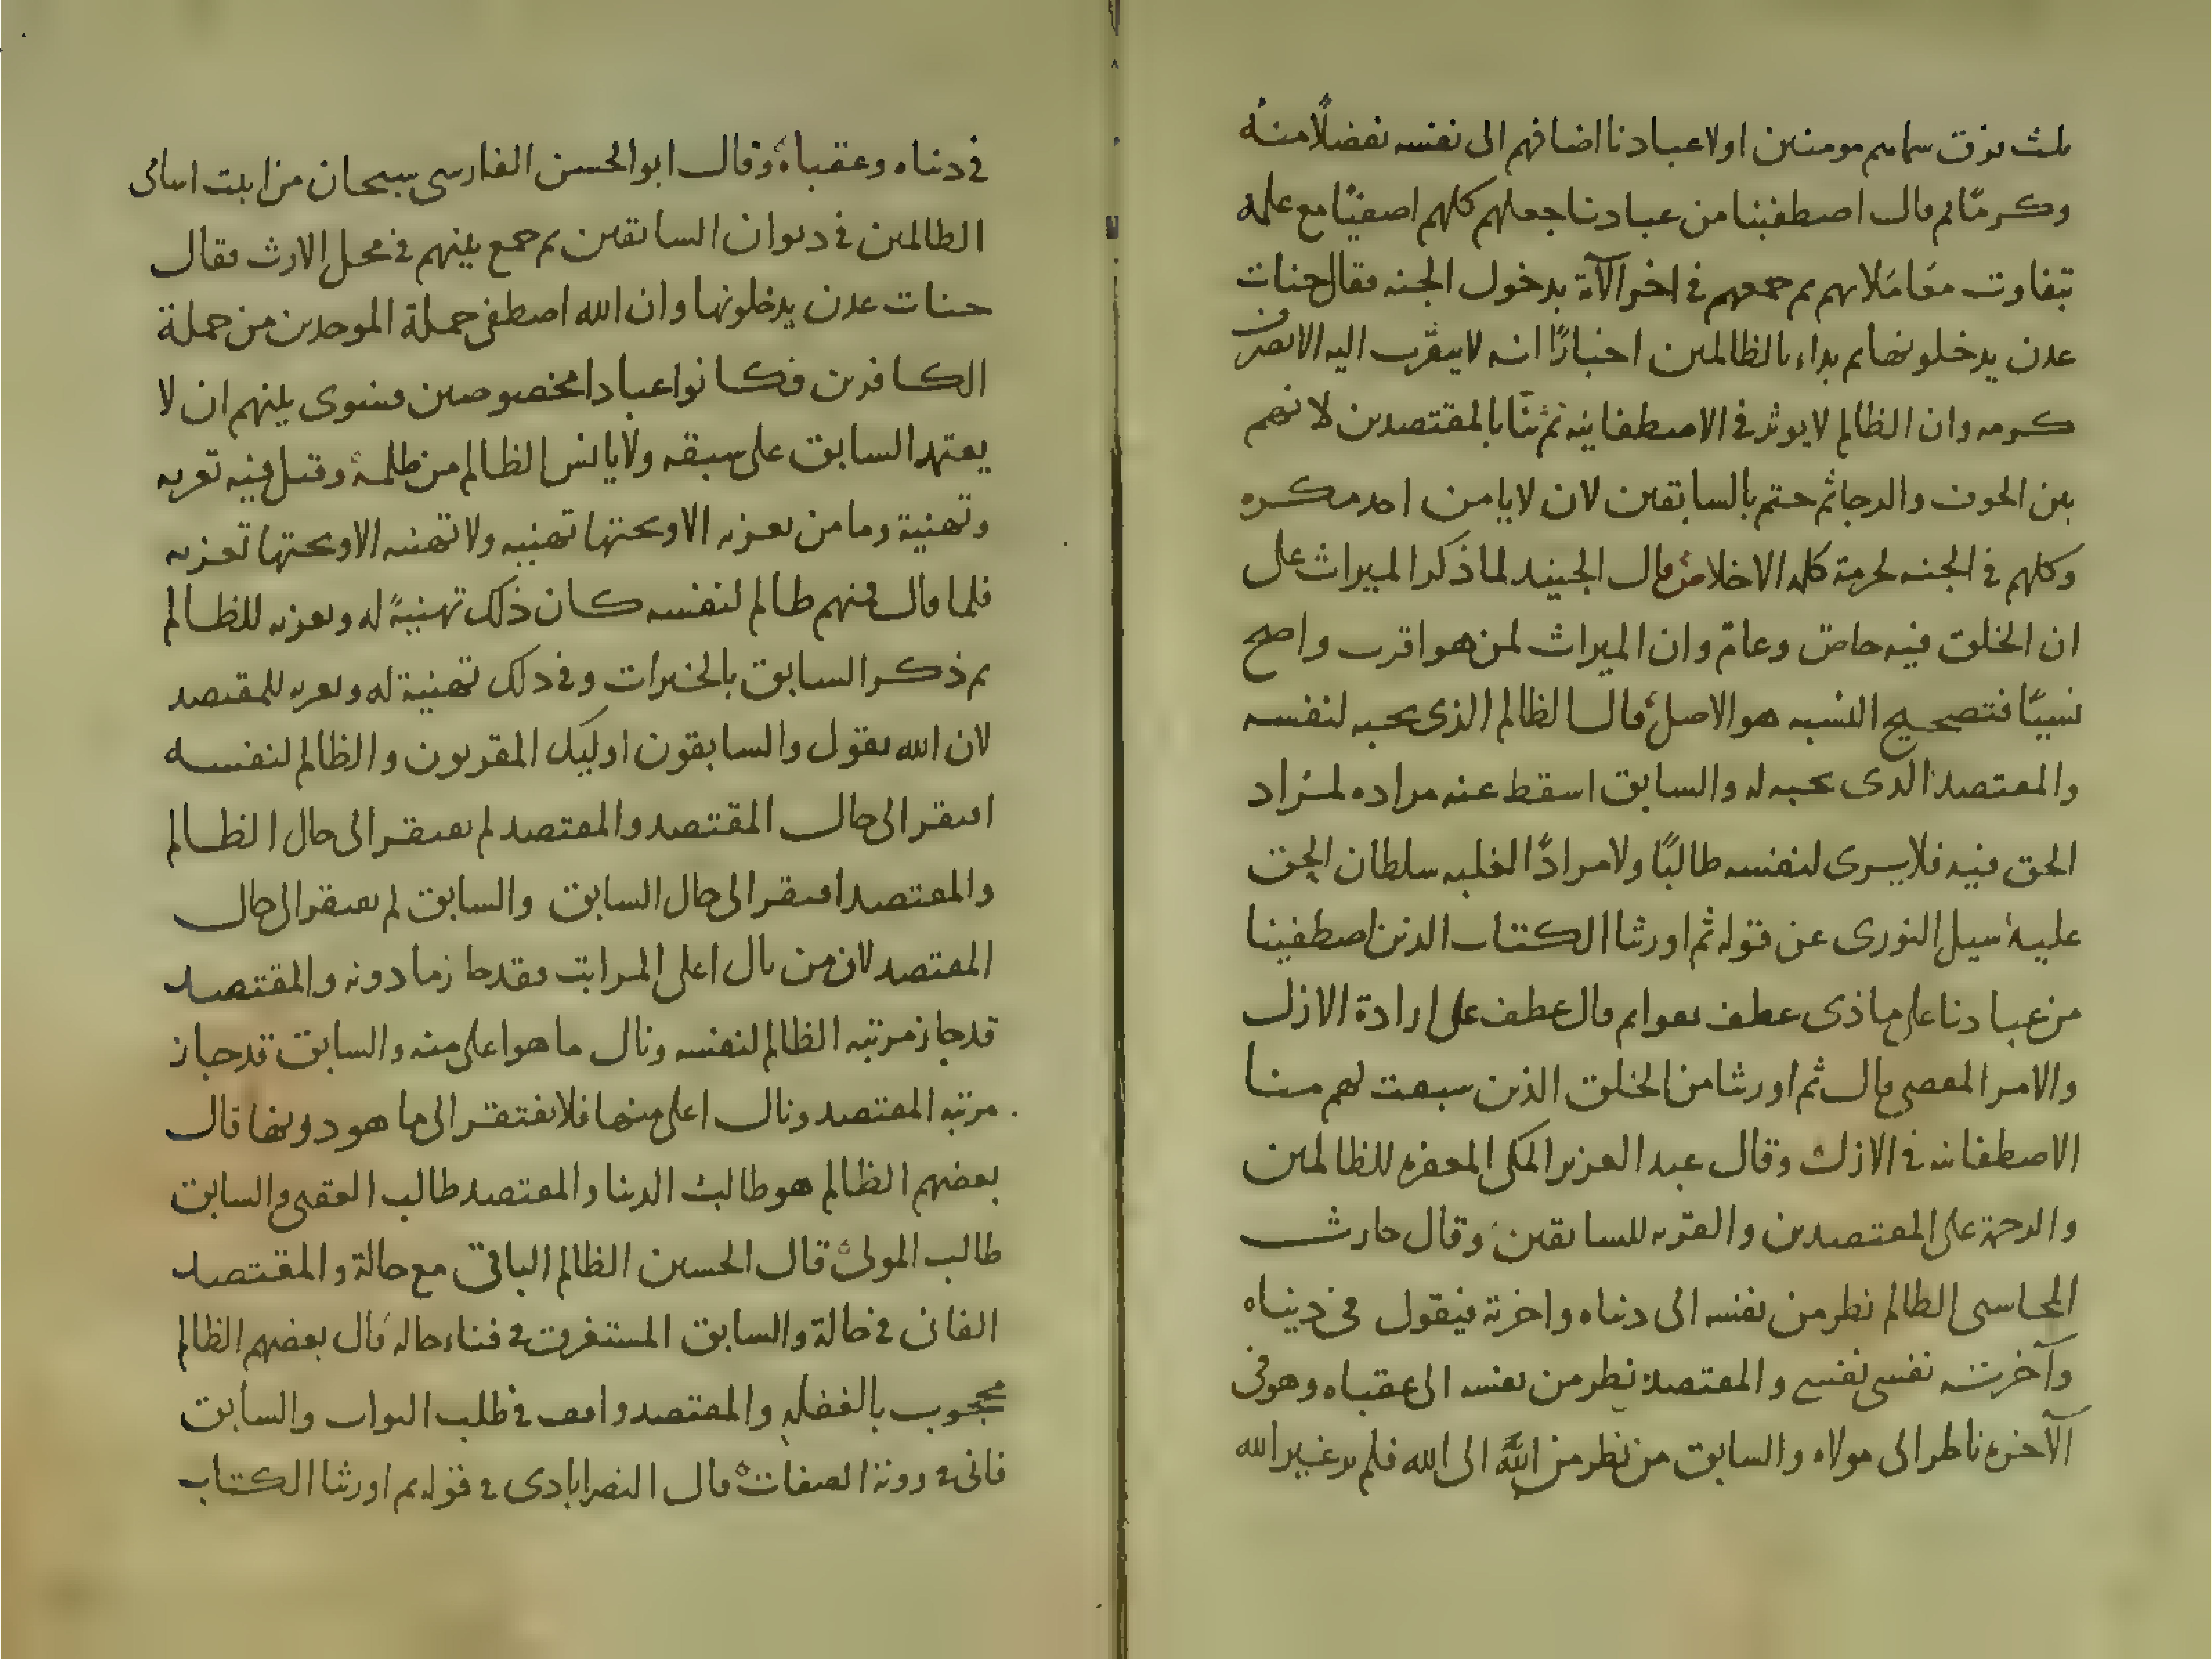 ثلث فرق سماهم مومنين اولا عبادنا اضافهم الى نفسه تفضلًا منه
وكرمًا ثم قال اصطفينا من عبادنا جعلهم كلهم اصفيًا مع علمه
بتفاوت معَامَلاتهم ثم جمعهم في اخر الآية بدخول الجنه فقال جنات
عدن يدخلونها ثم بداء بالظالمين اخبارًا انه لا يتقرب اليه الا بصرف
كرمه وان الظالم لا يوثر في الاصطفائيه ثم ثنّا بالمقتصدين لانهم
بين الخوف والرجا ثم ختم بالسابقين لان لا يامن احد مكره
وكلهم في الجنه لحرمة كلمه الاخلاص قال الجنيد لما ذكر الميراث على
ان الخلق فيه خاصّ وعامّ وان الميراث لمن هو اقرب واصح
نسبًا فتصحيح النسبه هو الاصل قال الظالم الذى يحبه لنفسه
والمقتصد الذى يحبه له والسابق اسقط عنه مراده لمراد
الحق فيه فلا يرى لنفسه طالبًا ولا مرادًا لغلبه سلطان الحق
عليه سيل النورى عن قوله ثم اورثنا الكتاب الذين اصطفينا
من عبادنا على ماذى عطف بقوله ثم قال عطف على ارادة الازل
والامر المقضى قال ثم اورثنا من الخلق الذين سبقت لهم منا
الاصطفائيه في الازل وقال عبد العزيز المكى المغفره للظالمين
والرحمة على المقتصدين والقربه للسابقين وقال حارث
المحاسبى الظالم نظر من نفسه الى دنياه واخرته فيقول في دنياه
وآخرته نفسى نفسى والمقتصد نظر من نفسه الى عقباه وهو في
الآخره ناظر الى مولاه والسابق من نظر من اللّه الى الله فلم ير غير الله
في دنياه وعقباه وقال ابو الحسن الفارسى سبحان من اثبت اسامى
الظالمين في ديوان السابقين ثم جمع بينهم في محل الارث فقال
جنات عدن يدخلونها وان الله اصطفى جملة الموحدين من جملة
الكافرين فكانوا عبادا مخصوصين فسوى بينهم ان لا
يعتمد السابق على سبقه ولا يايس الظالم من ظلمه وقيل فيه تعزيه
وتهنية وما من تعزيه الا وتحتها تهنيه ولا تهنيه الا وتحتها تعزيه
فلما قال فمنهم ظالم لنفسه كان ذلك تهنيةً له وتعزيه للظالم
ثم ذكر السابق بالخيرات وفي ذلك تهنية له وتعزيه للمقتصد
لان الله يقول والسابقون اوليك المقربون والظالم لنفسه
افتقر الى حال المقتصد والمقتصد لم يفتقر الى حال الظالم
والمقتصد افتقر الى حال السابق والسابق لم يفتقر الى حال
المقتصد لان من نال اعلى المراتب فقد حاز ما دونه والمقتصد
قد جاز مرتبه الظالم لنفسه ونال ما هو اعلى منه والسابق قد جاز
مرتبه المقتصد ونال اعلى منها فلا يفتقر الى ما هو دونها قال
بعضهم الظالم هو طالب الدنيا والمقتصد طالب العقبى والسابق
طالب المولى قال الحسين الظالم الباقى مع حالة والمقتصد
الفانى في حالة والسابق المستغرق في فناء حاله قال بعضهم الظالم
محجوب بالغفله والمقتصد واقف في طلب الثواب والسابق
فانى في روية الصفات قال النصرابادى في قوله ثم اورثنا الكتاب